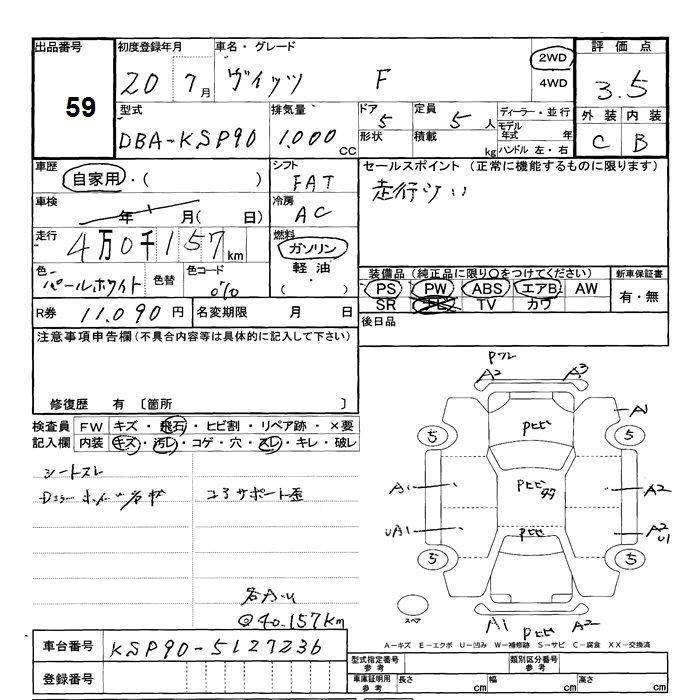 出品番号 初度登録年月 車名・グレード 評価点
59 20 7月 ヴィッツ F 2WD 4WD 3.5
型式 排気量 ドア 定員 ディーラー・並行 外装 内装
DBA-KSP90 1.000 CC 5 5人 モデル年式 年 C B
形状 積載 kg ハンドル 左・右
車歴 シフト セールスポイント (正常に機能するものに限ります)
自家用・( ) FAT
車検 年 月( 日) 冷房 AC
走行 4万0千157km 燃料 ガソリン
軽油・( )
色 パールホワイト 色替 色コード
装備品(純正品に限り○をつけてください) 新車保証書
PS PW ABS エアB AW 有・無
SR TV カワ
R券 11.090円 名変期限 月 日 後日品
注意事項申告欄(不具合内容等は具体的に記入して下さい)
修復歴 有 〔箇所 〕
検査員 FW キズ・飛石・ヒビ割・リペア跡・×要
記入欄 内装 キズ・汚レ・コゲ・穴・スレ・キレ・破レ
シートスレ
コアサポート歪
◎40.157km
Pワレ
A2 A3
Pヒビ A1
5 5
A1 Pヒビ A2
UA1 Pヒビ A2 U1
5 5
スペア A1 Pヒビ A2
A-キズ E-エクボ U-凹み W-補修跡 S-サビ C-腐食 XX-交換済
車台番号 KSP90-5127236
型式指定番号 参考 類別区分番号 参考
登録番号 車庫証明用 参考 長さ cm 幅 cm 高さ cm